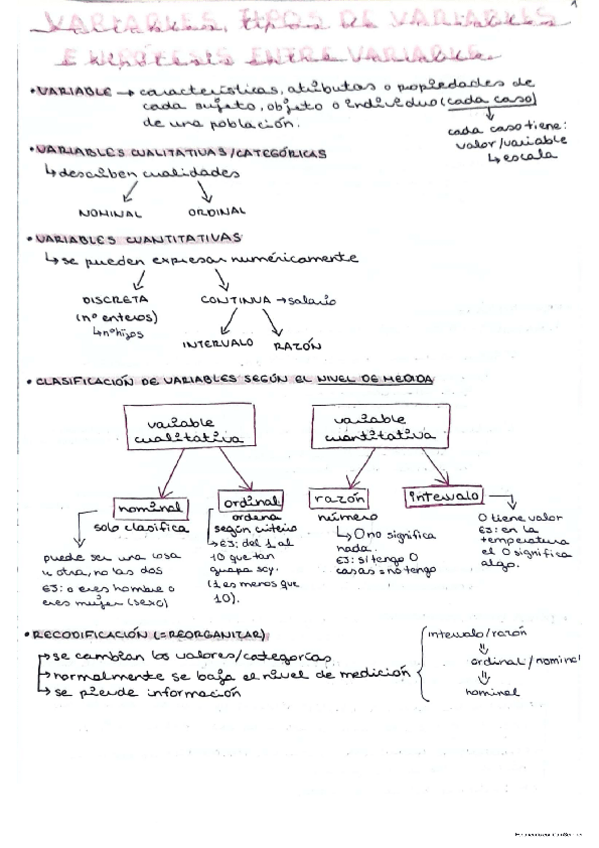 1
VARIABLES, TIPOS DE VARIABLES
E HIPÓTESIS ENTRE VARIABLE.
• VARIABLE → características, atributos o propiedades de
cada sujeto, objeto o individuo (cada caso)
de una población.
cada caso tiene:
valor/variable
↳ escala
• VARIABLES CUALITATIVAS/CATEGÓRICAS
↳ describen cualidades
NOMINAL ORDINAL
• VARIABLES CUANTITATIVAS
↳ se pueden expresar numéricamente
DISCRETA CONTINUA → salario
(nº enteros)
↳ nº hijos
INTERVALO RAZÓN
• CLASIFICACIÓN DE VARIABLES SEGÚN EL NIVEL DE MEDIDA
variable
cualitativa
variable
cuantitativa
nominal
solo clasifica
puede ser una cosa
u otra, no las dos
EJ: o eres hombre o
eres mujer (sexo)
ordinal
ordena
según criterio
→ EJ: del 1 al
10 que tan
guapa soy.
(1 es menos que
10).
razón
número
↳ 0 no significa
nada.
EJ: si tengo 0
casas = no tengo
intervalo
0 tiene valor
EJ: en la
temperatura
el 0 significa
algo.
• RECODIFICACIÓN (=REORGANIZAR)
→ se cambian los valores/categorías
→ normalmente se baja el nivel de medición
→ se pierde información
intervalo/razón
⇓
ordinal/nominal
⇓
nominal